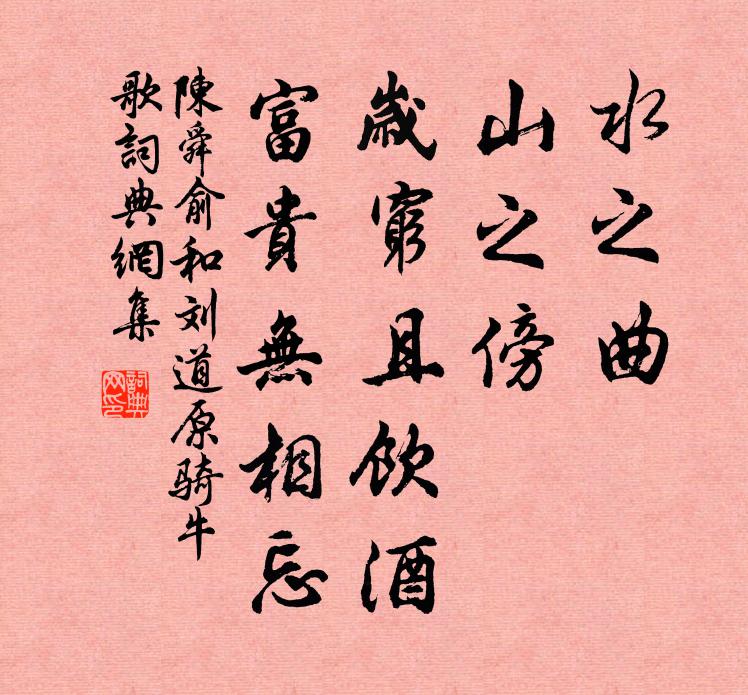 水之曲
山之傍
歲窮且飲酒
富貴無相忘
陳舜俞和刘道原骑牛
歌詞典網集
詞典网印